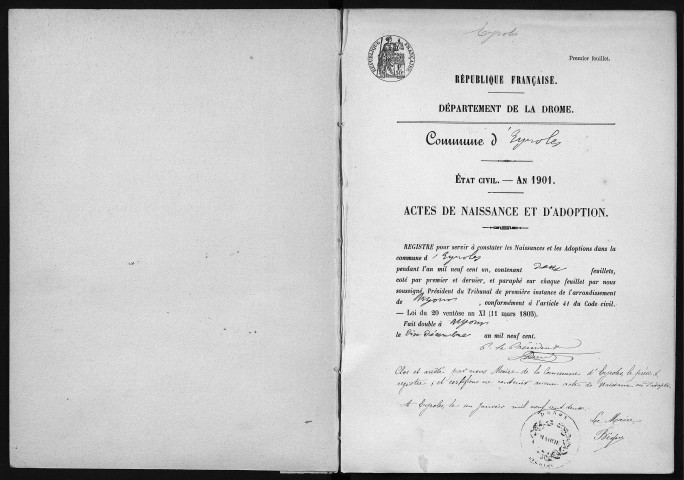 Eyroles
Premier feuillet.
RÉPUBLIQUE FRANÇAISE
RÉPUBLIQUE FRANÇAISE.
DÉPARTEMENT DE LA DROME.
Commune d'Eyroles
ÉTAT CIVIL. — AN 1901.
ACTES DE NAISSANCE ET D'ADOPTION.
REGISTRE pour servir à constater les Naissances et les Adoptions dans la
commune d'Eyroles
pendant l'an mil neuf cent un, contenant deux feuillets,
coté par premier et dernier, et paraphé sur chaque feuillet par nous
soussigné, Président du Tribunal de première instance de l'arrondissement
de Nyons, conformément à l'article 41 du Code civil.
— Loi du 20 ventôse an XI (11 mars 1803).
Fait double à Nyons
le dix Décembre an mil neuf cent.
P. le Président
Clos et arrêté par nous Maire de la Commune d'Eyroles, le présent
registre, et certifions ne contenir aucun acte de Naissance ou d'adoption
A Eyroles, le un Janvier mil neuf cent deux
Le Maire,
MAIRIE